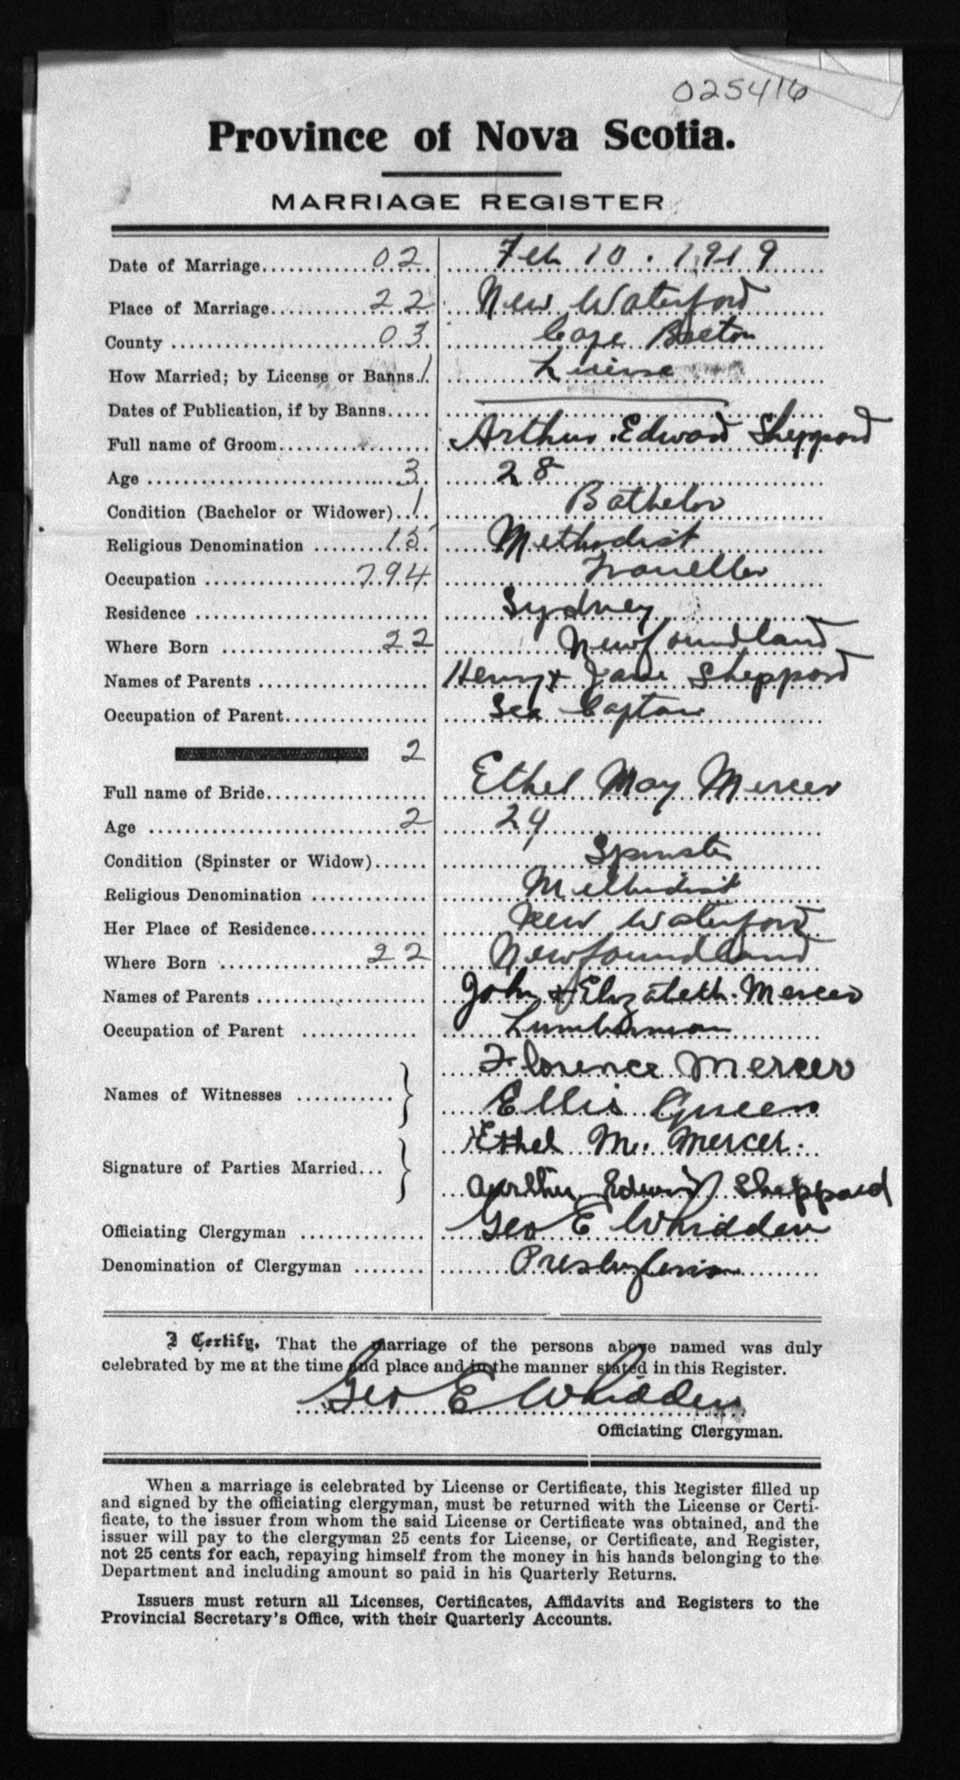 025416
Province of Nova Scotia.
MARRIAGE REGISTER
Date of Marriage 02 Feb 10. 1919
Place of Marriage 22 New Waterford
County 03 Cape Breton
How Married; by License or Banns 1 License
Dates of Publication, if by Banns
Full name of Groom Arthur Edward Sheppard
Age 3 28
Condition (Bachelor or Widower) 1 Bachelor
Religious Denomination 15 Methodist
Occupation 794 Traveller
Residence Sydney
Where Born 22 Newfoundland
Names of Parents Henry & Jane Sheppard
Occupation of Parent Sea Captain
2
Full name of Bride Ethel May Mercer
Age 2 24
Condition (Spinster or Widow) Spinster
Religious Denomination Methodist
Her Place of Residence New Waterford
Where Born 22 Newfoundland
Names of Parents John & Elizabeth Mercer
Occupation of Parent Lumberman
Names of Witnesses } Florence Mercer
Ellis Green
Signature of Parties Married... } Ethel M. Mercer.
Arthur Edward Sheppard
Officiating Clergyman Geo E Whidden
Denomination of Clergyman Presbyterian
I Certify, That the marriage of the persons above named was duly
celebrated by me at the time and place and in the manner stated in this Register.
Geo E Whidden
Officiating Clergyman.
When a marriage is celebrated by License or Certificate, this Register filled up
and signed by the officiating clergyman, must be returned with the License or Certi-
ficate, to the issuer from whom the said License or Certificate was obtained, and the
issuer will pay to the clergyman 25 cents for License, or Certificate, and Register,
not 25 cents for each, repaying himself from the money in his hands belonging to the
Department and including amount so paid in his Quarterly Returns.
Issuers must return all Licenses, Certificates, Affidavits and Registers to the
Provincial Secretary's Office, with their Quarterly Accounts.